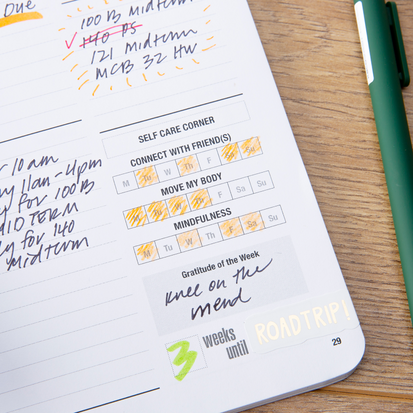 Due
100 B Midterm
✓ 140 PS
121 Midterm
MCB 32 HW
10 am
11am-4pm
for 100B
MIDTERM
for 140
Midterm
SELF CARE CORNER
CONNECT WITH FRIEND(S)
M Tu W Th F Sa Su
MOVE MY BODY
M Tu W Th F Sa Su
MINDFULNESS
M Tu W Th F Sa Su
Gratitude of the Week
knee on the
mend
3 weeks
until
ROADTRIP!
29